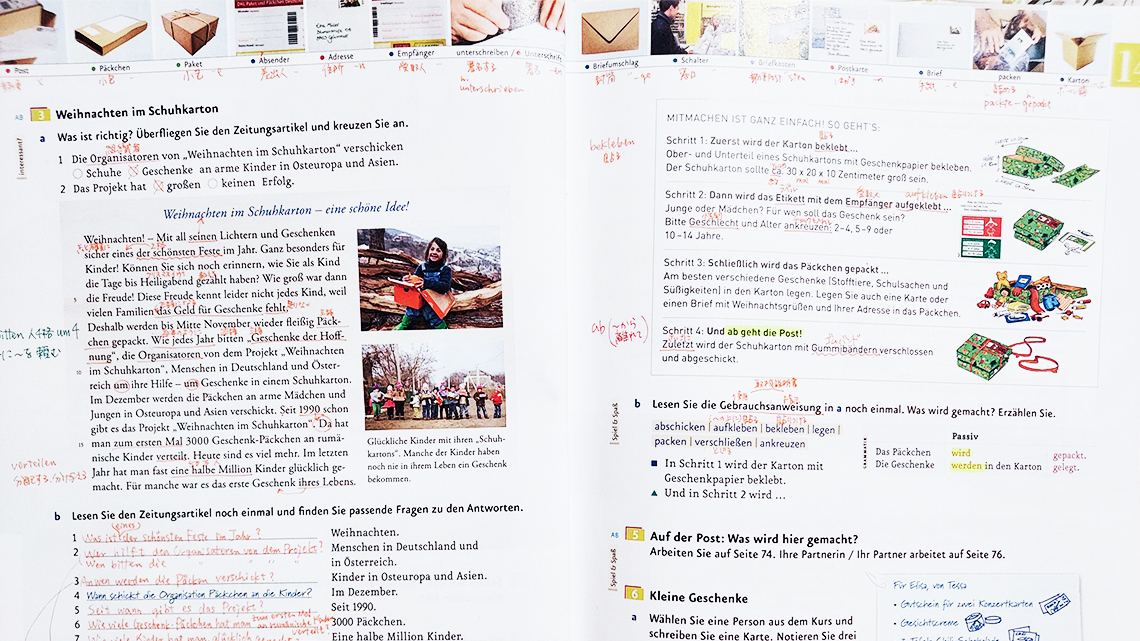 DHL Paket und Päckchen Deutschland
Post
Päckchen
Paket
Absender
Adresse
Empfänger
unterschreiben / Unterschrift
小包
小包
住所
unterschrieben
AB 3 Weihnachten im Schuhkarton
interessant?
a Was ist richtig? Überfliegen Sie den Zeitungsartikel und kreuzen Sie an.
1 Die Organisatoren von „Weihnachten im Schuhkarton“ verschicken
Schuhe Geschenke an arme Kinder in Osteuropa und Asien.
2 Das Projekt hat großen keinen Erfolg.
Weihnachten im Schuhkarton – eine schöne Idee!
Weihnachten! – Mit all seinen Lichtern und Geschenken
sicher eines der schönsten Feste im Jahr. Ganz besonders für
Kinder! Können Sie sich noch erinnern, wie Sie als Kind
die Tage bis Heiligabend gezählt haben? Wie groß war dann
5 die Freude! Diese Freude kennt leider nicht jedes Kind, weil
vielen Familien das Geld für Geschenke fehlt.
Deshalb werden bis Mitte November wieder fleißig Päck-
chen gepackt. Wie jedes Jahr bitten „Geschenke der Hoff-
nung“, die Organisatoren von dem Projekt „Weihnachten
10 im Schuhkarton“, Menschen in Deutschland und Öster-
reich um ihre Hilfe – um Geschenke in einem Schuhkarton.
Im Dezember werden die Päckchen an arme Mädchen und
Jungen in Osteuropa und Asien verschickt. Seit 1990 schon
gibt es das Projekt „Weihnachten im Schuhkarton“. Da hat
15 man zum ersten Mal 3000 Geschenk-Päckchen an rumä-
nische Kinder verteilt. Heute sind es viel mehr. Im letzten
Jahr hat man fast eine halbe Million Kinder glücklich ge-
macht. Für manche war es das erste Geschenk ihres Lebens.
bitten 人4格 um 4
に〜を頼む
verteilen
Glückliche Kinder mit ihren „Schuh-
kartons“. Manche der Kinder haben
noch nie in ihrem Leben ein Geschenk
bekommen.
b Lesen Sie den Zeitungsartikel noch einmal und finden Sie passende Fragen zu den Antworten.
(eines)
1 Was ist der schönsten Feste im Jahr? Weihnachten.
2 Wer hilft den Organisatoren von dem Projekt? Menschen in Deutschland und
Wen bitten die in Österreich.
3 An wen werden die Päckchen verschickt? Kinder in Osteuropa und Asien.
4 Wann schickt die Organisation Päckchen an die Kinder? Im Dezember.
5 Seit wann gibt es das Projekt? Seit 1990.
6 Wie viele Geschenk-Päckchen hat man zum ersten Mal an rumänische Kinder verteilt? 3000 Päckchen.
7 Wie viele Kinder hat man glücklich Eine halbe Million Kinder.
Briefumschlag
Schalter
Briefkasten
Postkarte
Brief
packen
Karton
14
封筒
窓口
packte – gepackt
bekleben
貼る
MITMACHEN IST GANZ EINFACH! SO GEHT'S:
Schritt 1: Zuerst wird der Karton beklebt …
Ober- und Unterteil eines Schuhkartons mit Geschenkpapier bekleben.
Der Schuhkarton sollte ca. 30 x 20 x 10 Zentimeter groß sein.
mal mal
aufkleben
Schritt 2: Dann wird das Etikett mit dem Empfänger aufgeklebt …
Junge oder Mädchen? Für wen soll das Geschenk sein?
Bitte Geschlecht und Alter ankreuzen: 2–4, 5–9 oder
10–14 Jahre.
Schritt 3: Schließlich wird das Päckchen gepackt …
Am besten verschiedene Geschenke (Stofftiere, Schulsachen und
Süßigkeiten) in den Karton legen. Legen Sie auch eine Karte oder
einen Brief mit Weihnachtsgrüßen und Ihrer Adresse in das Päckchen.
ab
Schritt 4: Und ab geht die Post!
Zuletzt wird der Schuhkarton mit Gummibändern verschlossen
und abgeschickt.
Spiel & Spaß
b Lesen Sie die Gebrauchsanweisung in a noch einmal. Was wird gemacht? Erzählen Sie.
abschicken | aufkleben | bekleben | legen |
packen | verschließen | ankreuzen
■ In Schritt 1 wird der Karton mit
Geschenkpapier beklebt.
▲ Und in Schritt 2 wird …
GRAMMATIK
Passiv
Das Päckchen wird gepackt.
Die Geschenke werden in den Karton gelegt.
AB 5 Auf der Post: Was wird hier gemacht?
Spiel & Spaß
Arbeiten Sie auf Seite 74. Ihre Partnerin / Ihr Partner arbeitet auf Seite 76.
6 Kleine Geschenke
a Wählen Sie eine Person aus dem Kurs und
schreiben Sie eine Karte. Notieren Sie drei
Für Elisa, von Tessa
• Gutschein für zwei Konzertkarten
• Gedichtscreme